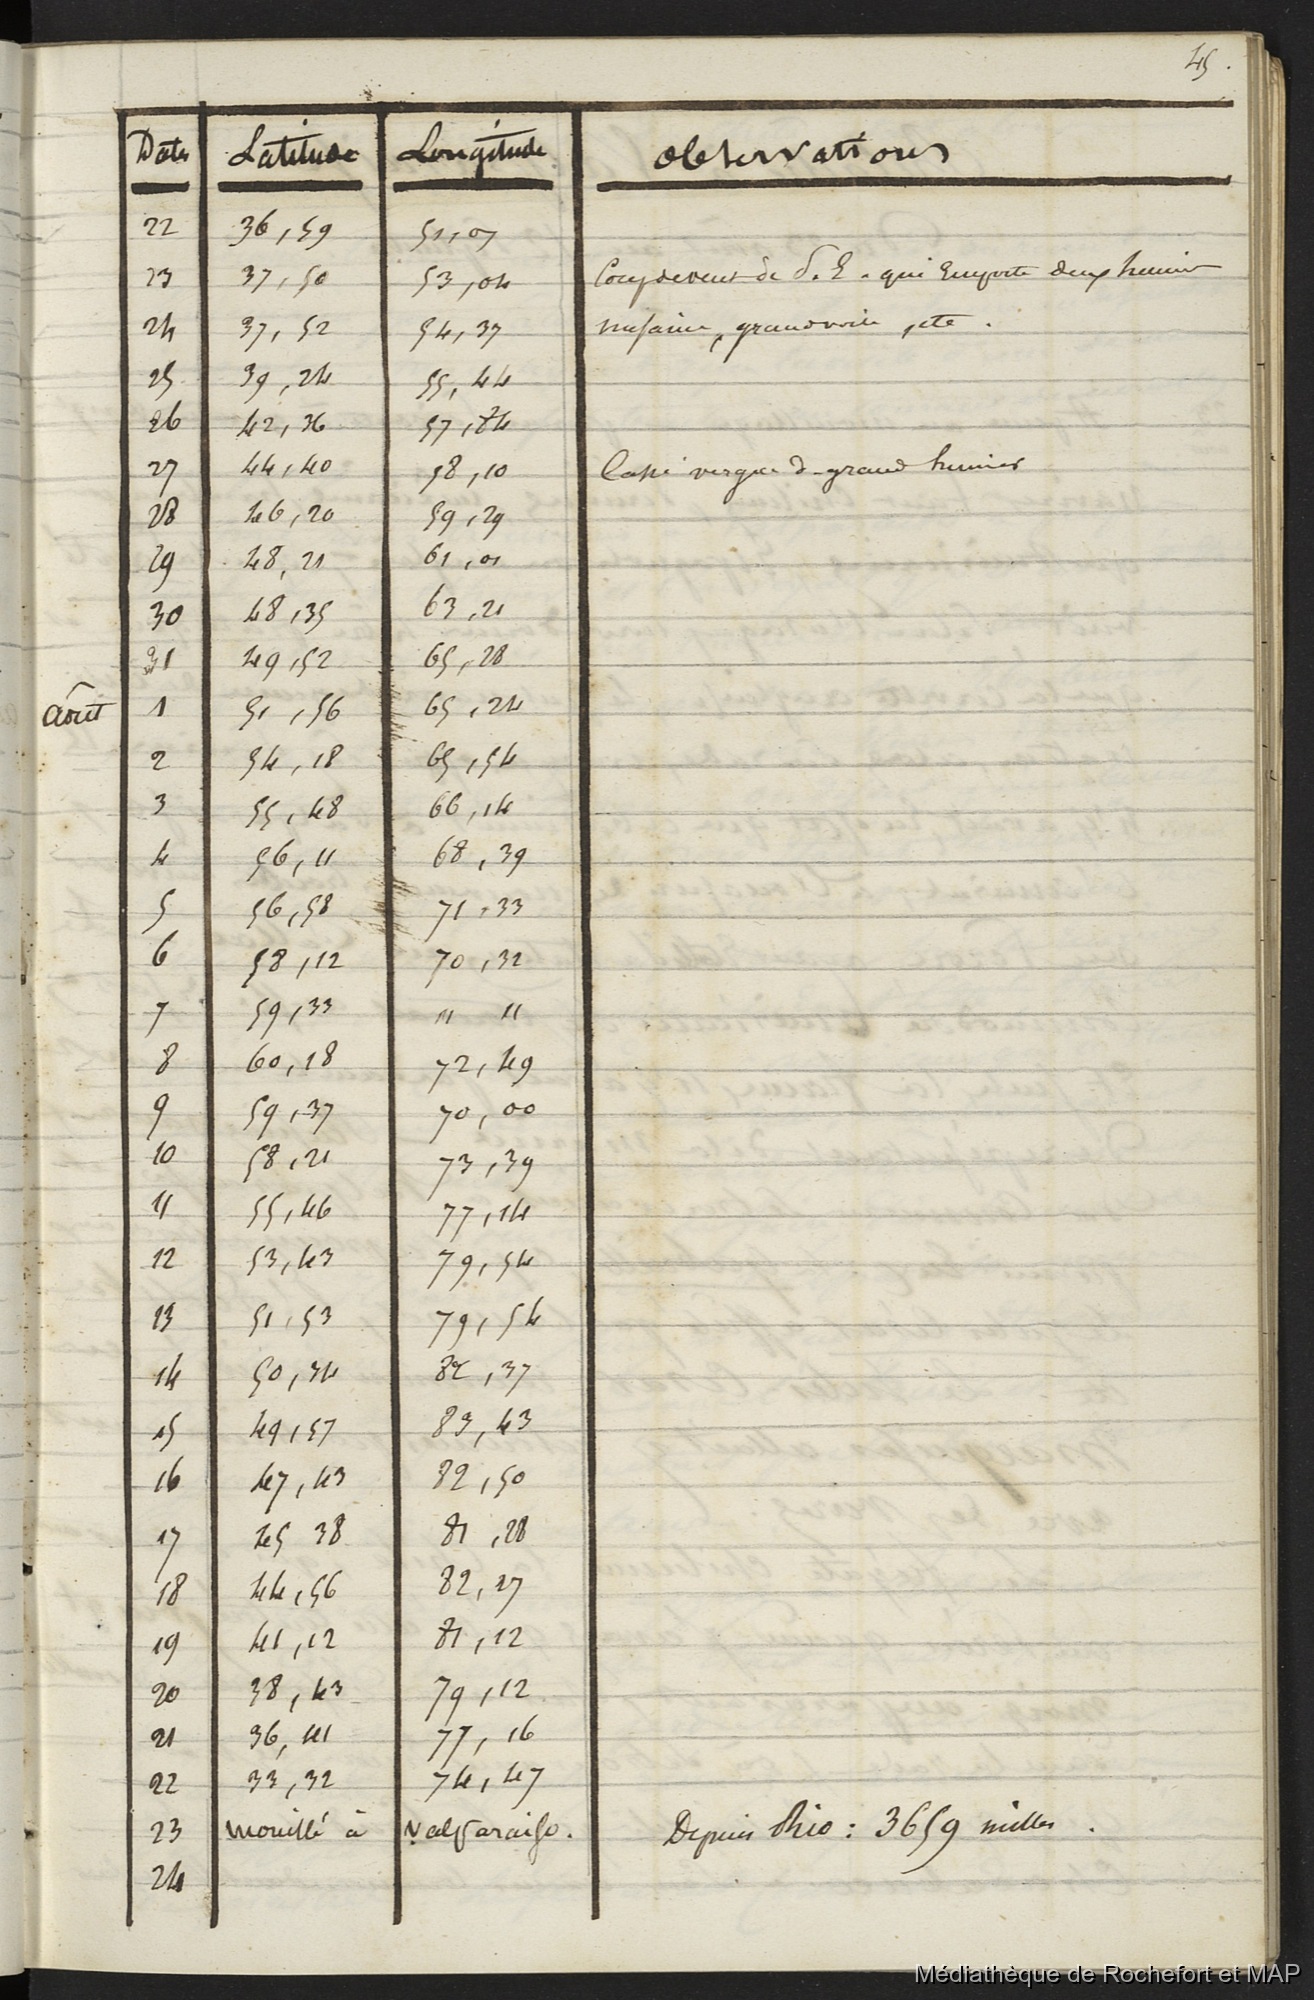 45.
Dates Latitude Longitude Observations
22 36,59 51,07
23 37,50 53,04 Coup de vent de S.E. qui Emporte deux huniers
24 37,52 54,37 misaine, grand voile, etc.
25 39,24 55,44
26 42,36 57,24
27 44,40 58,10 Cassé vergue de grand hunier
28 46,20 59,29
29 48,21 61,01
30 48,35 63,21
31 49,52 65,28
Août 1 51,56 65,24
2 54,18 65,54
3 55,48 66,14
4 56,11 68,39
5 56,58 71,33
6 58,12 70,32
7 59,33 " "
8 60,18 72,49
9 59,37 70,00
10 58,21 73,39
11 55,46 77,14
12 53,43 79,54
13 51,53 79,54
14 50,34 82,37
15 49,57 83,43
16 47,43 82,50
17 45 38 81,28
18 44,56 82,27
19 41,12 81,12
20 38,43 79,12
21 36,41 77,16
22 33,32 74,47
23 Mouillé à Valparaiso. Depuis Rio : 3659 milles.
24
Médiathèque de Rochefort et MAP